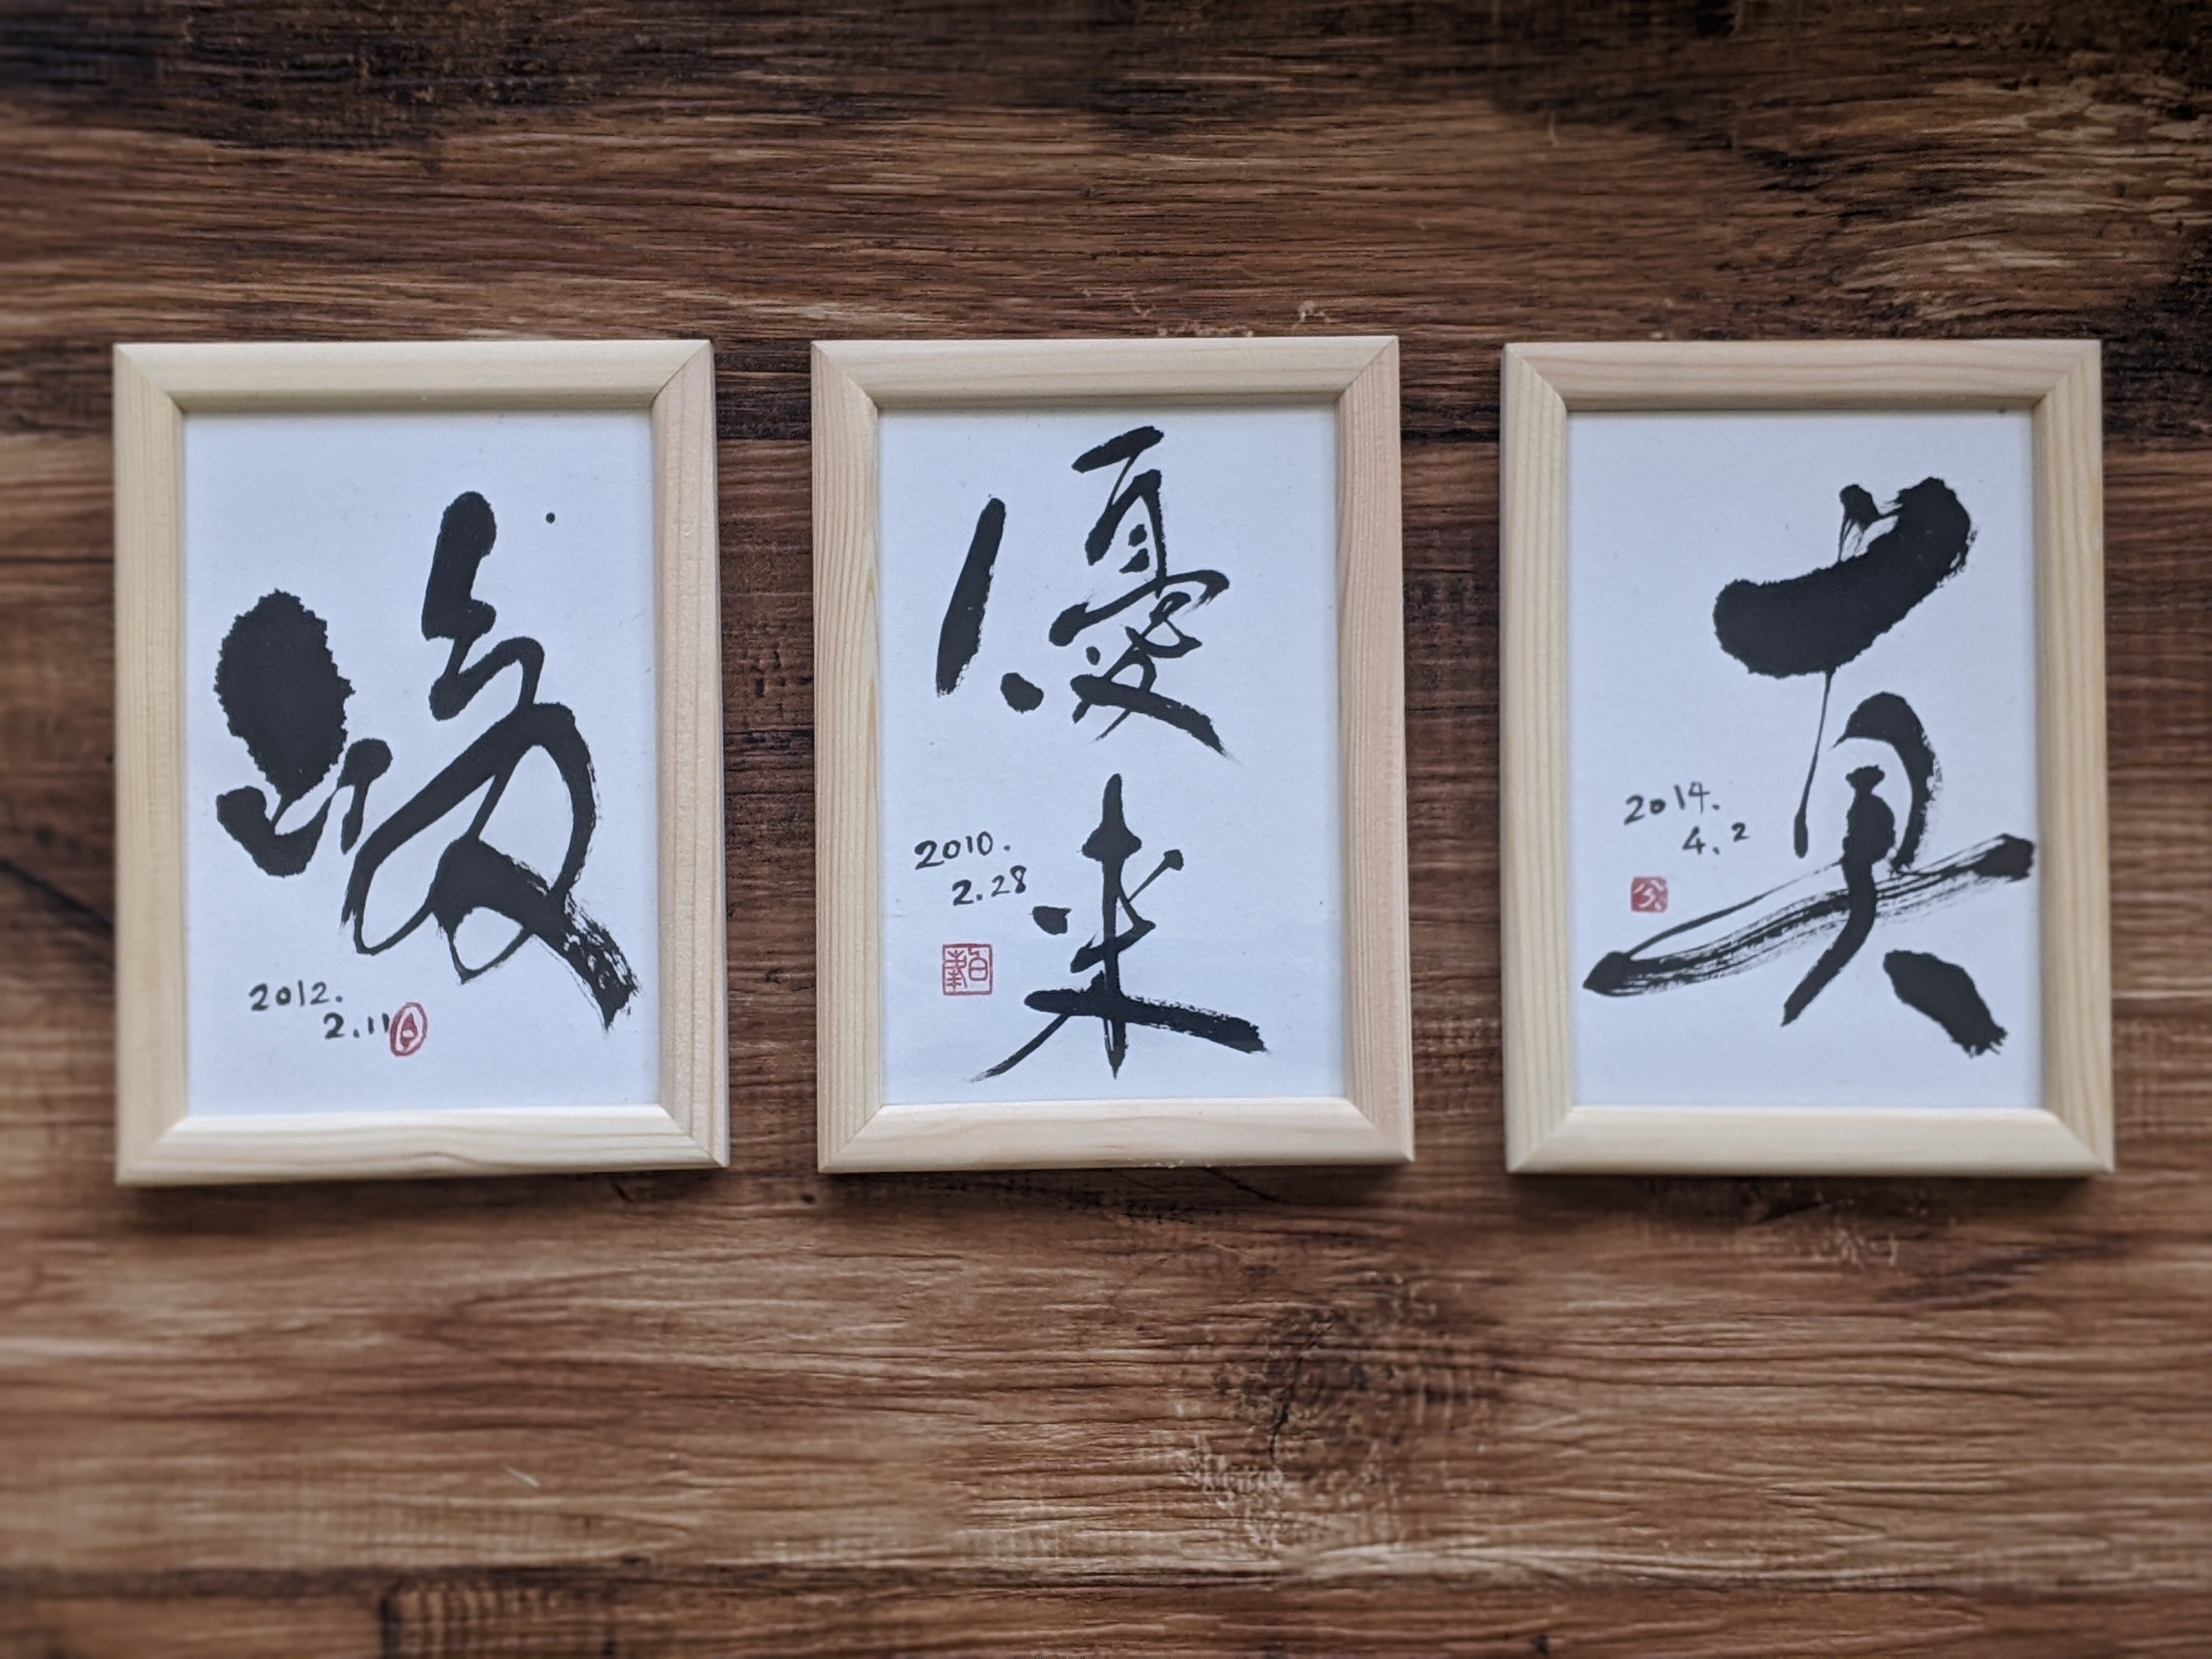 峻
2012.
2.11
優
来
2010.
2.28
真
2014.
4.2